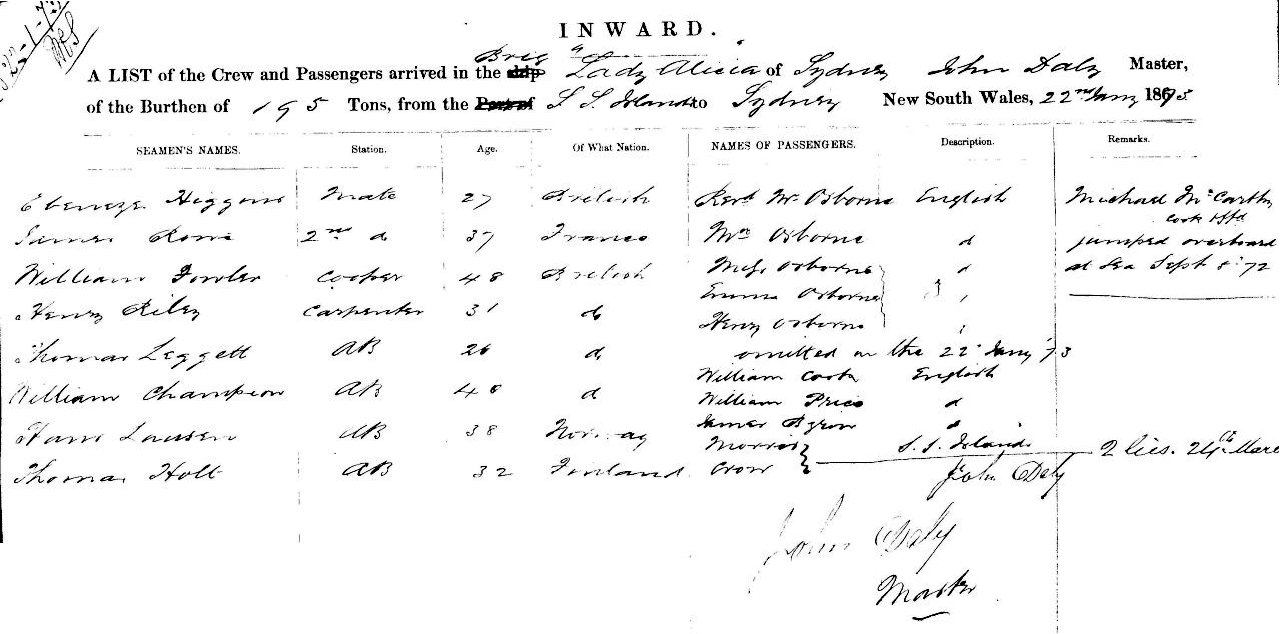 INWARD.
A LIST of the Crew and Passengers arrived in the Brig ship Lady Alicia of Sydney John Daly Master,
of the Burthen of 195 Tons, from the Port of S S Islands to Sydney New South Wales, 22nd Jany 1873
SEAMEN'S NAMES. Station. Age. Of What Nation. NAMES OF PASSENGERS. Description. Remarks.
Ebeneze Higgins Mate 27 British Revd Mr Osborne English Michael McCarthy
cook
James Rowe 2nd d 37 France Mrs Osborne d jumped overboard
William Fowler Cooper 48 British Miss Osborne d at Sea Sept 8 '72
Emma Osborne 3
Henry Riley Carpenter 31 do Henry Osborne
Thomas Leggett AB 26 d omitted on the 22 Jany 73
William Cook English
William Champion AB 48 d William Price d
James Byron
Hans Lausen AB 38 Norway Morris S. S. Islands 2 lics. 24th
Thomas Holt AB 32 Finland Crow John Daly
John Daly
Master